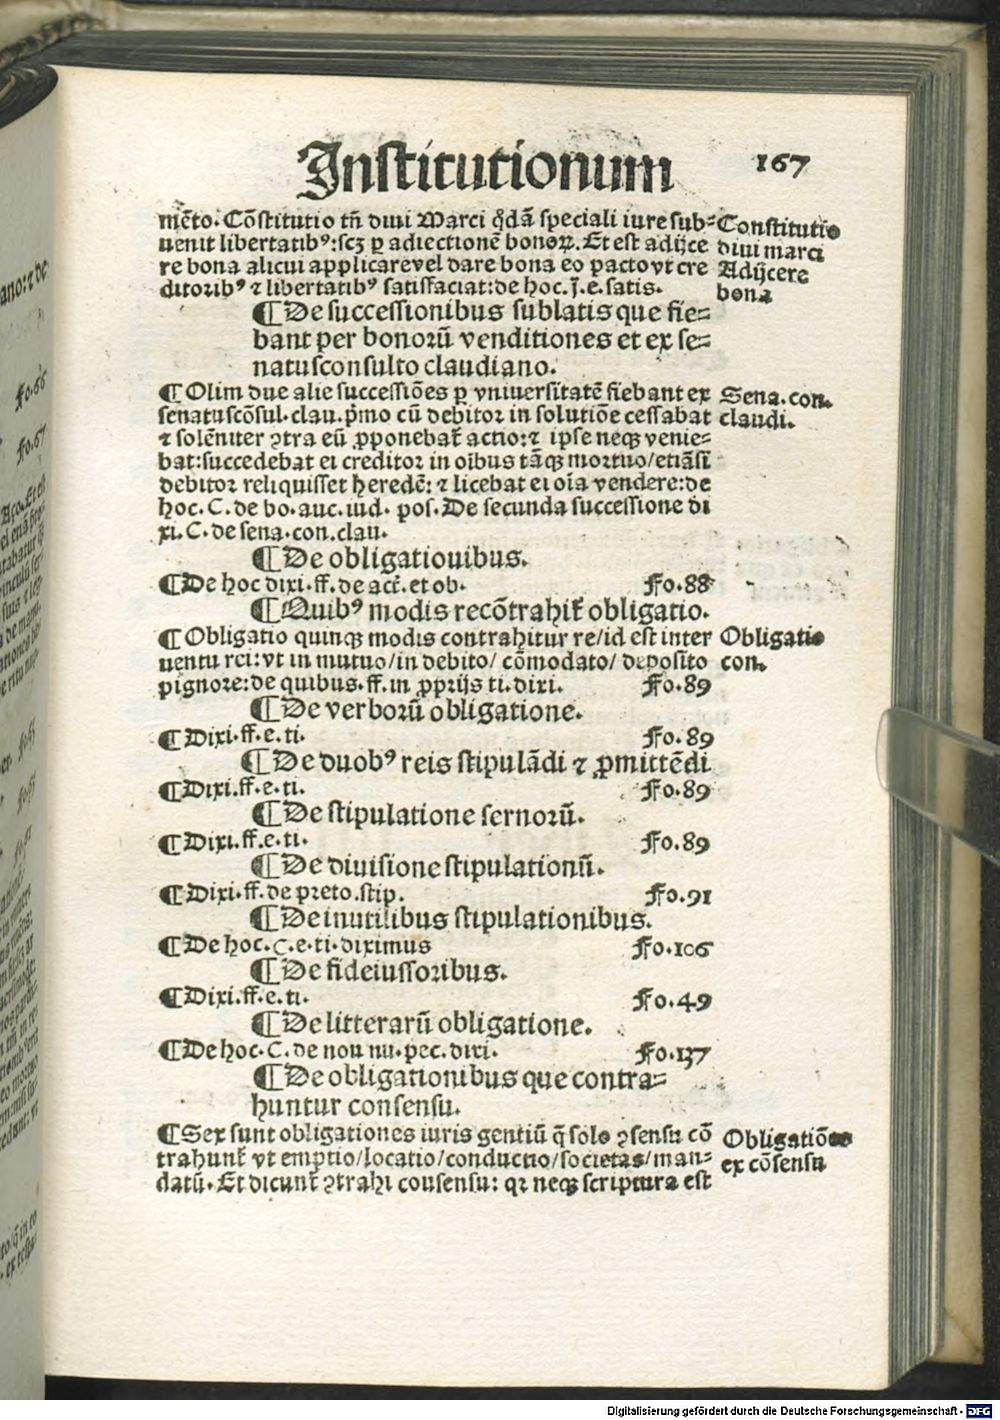 Institutionum 167
mēto. Cōstitutio tñ diui Marci q̇dā speciali iure sub⸗
uenit libertatibꝰ: scꝫ ꝑ adiectionē bonoꝝ. Et est adijce
re bona alicui applicare vel dare bona eo pacto vt cre
ditoribꝰ ⁊ libertatibꝰ satisfaciat: de hoc. j. e. satis.
Constitutio
diui marci
Adijcere
bona
¶ De successionibus sublatis que fie⸗
bant per bonorū venditiones et ex se⸗
natusconsulto claudiano.
¶ Olim due alie successiōes ꝑ vniuersitatē fiebant ex
senatuscōsul. clau. pͥmo cū debitor in solutiōe cessabat
⁊ solēniter ꝯtra eū ꝓponebat̄ actio: ⁊ ipse neqꝫ venie⸗
bat: succedebat ei creditor in oībus tāqꝫ mortuo/ etiāsi
debitor reliquisset heredē: ⁊ licebat ei oīa vendere: de
hoc. C. de bo. auc. iud. pos. De secunda successione di
xi. C. de sena. con. clau.
Sena. con.
claudi.
¶ De obligatiouibus.
¶ De hoc dixi. ff. de act̄. et ob. Fo. 88
¶ Quibꝰ modis recōtrahit̄ obligatio.
¶ Obligatio quinqꝫ modis contrahitur re/ id est inter
uentu rei: vt in mutuo/ in debito/ cōmodato/ deposito
pignore: de quibus. ff. in ꝓprijs ti. dixi. Fo. 89
Obligatio
con.
¶ De verborū obligatione.
¶ Dixi. ff. e. ti. Fo. 89
¶ De duobꝰ reis stipulādi ⁊ ꝓmittēdi
¶ Dixi. ff. e. ti. Fo. 89
¶ De stipulatione sernorū.
¶ Dixi. ff. e. ti. Fo. 89
¶ De diuisione stipulationū.
¶ Dixi. ff. de preto. stip. Fo. 91
¶ De inutilibus stipulationibus.
¶ De hoc. C. e. ti. diximus Fo. 106
¶ De fideiussoribus.
¶ Dixi. ff. e. ti. Fo. 49
¶ De litterarū obligatione.
¶ De hoc. C. de non nu. pec. dixi. Fo. 137
¶ De obligationibus que contra⸗
huntur consensu.
¶ Sex sunt obligationes iuris gentiū q̄ solo ꝯsensu cō
trahunt̄ vt emptio/ locatio/ conductio/ societas/ man⸗
datū. Et dicunt̄ ꝯtrahi consensu: qꝛ neqꝫ scriptura est
Obligatiōes
ex cōsensu
Fo. 66
Fo. 67
Digitalisierung gefördert durch die Deutsche Forschungsgemeinschaft - DFG